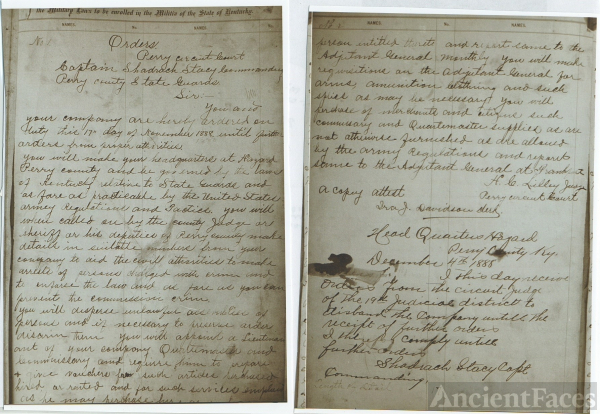 the Military Laws to be enrolled in the Militia of the State of Kentucky
NAMES. NAMES.
No 1 Orders
Perry circuit Court
Captain Shadrach Stacy Commanding
Perry county State Guards
Sir—
You and
your company are hereby ordered on
Duty this 17th day of November 1888 until further
orders from proper athorities
you will make your headquarters at Hazard
Perry county and be governed by the laws
of Kentucky relative to State Guards and
as fare as practicable by the United States
army regulations and Tactics. you will
when called on by the county Judge or
sheriff or his deputies of Perry county make
details in suitable numbers from your
company to aid the civil athorities to make
arrests of persons charged with crime and
to enforce the law and as fare as you can
prevent the commission crime
you will dispurse unlawful assemblies of
persons and if necessary to preserve order
disarm them You will appoint a Lieutenant
out of your company Quartermaster and
commissary and require him to
voucher for such articles purchased
hired or rated and for such services employed
as he may purchase
NAMES. NAMES.
person entitled thereto and report same to the
Adjutant General Monthly you will make
requisitions on the Adjutant General for
arms, amunition clothing and such
supplies as may be necessary you will
purchase of merchants and citizens such
commissary and Quartermaster supplies as are
not otherwise furnished as are allowed
by the army Regulations and report
same to the Adjutant General at Frankfort
H. C. Lilley Judge
Perry circuit Court
A copy attest
Ira J. Davidson clerk
Head Quarters Hazard
Perry County Ky.
December 4th 1888
I this day receive
Orders from the Circuit Judge
of the 19th Judicial district to
disband the Company untill the
receipt of further orders
I they for comply untill
further orders
Shadrach Stacy Capt
Commanding
AncientFaces